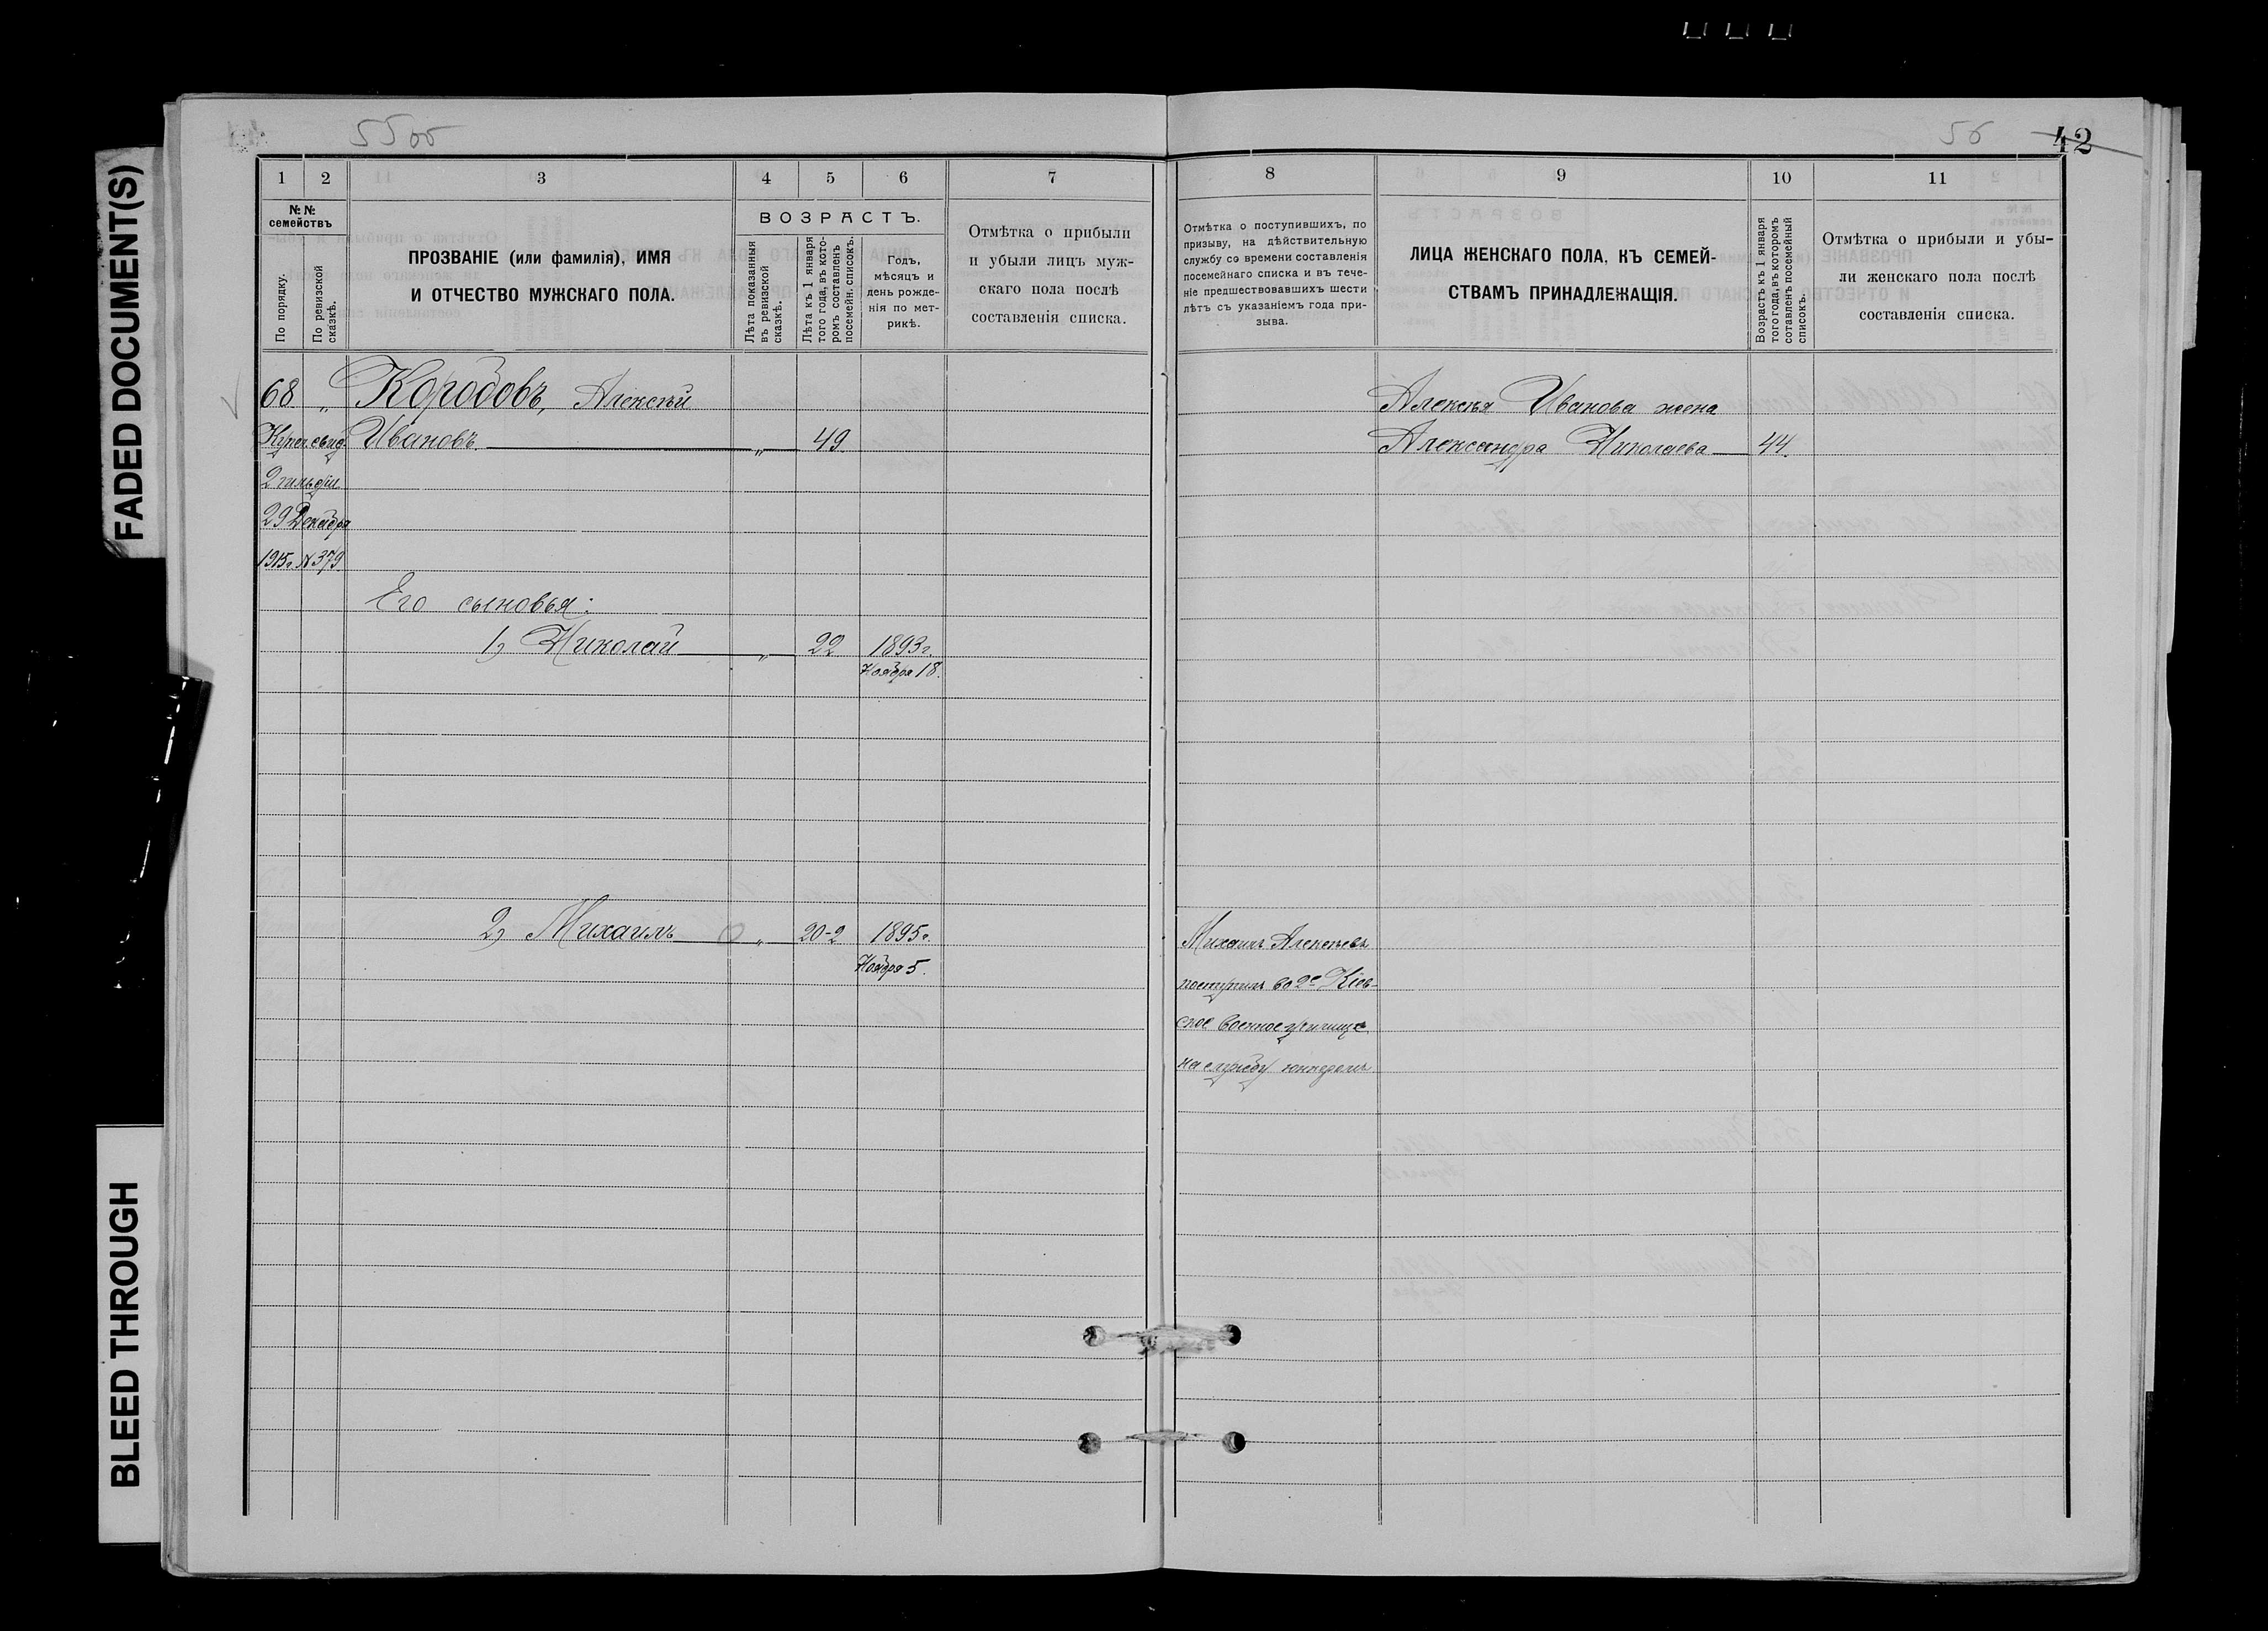 FADED DOCUMENT(S)
BLEED THROUGH
55об
56
42
1 2 3 4 5 6 7
№№ семействъ
По порядку.
По ревизской сказкѣ.
ПРОЗВАНІЕ (или фамилія), ИМЯ
И ОТЧЕСТВО МУЖСКАГО ПОЛА.
ВОЗРАСТЪ.
Лѣта показанныя въ ревизской сказкѣ.
Лѣта къ 1 января того года, въ которомъ составленъ посемейн. списокъ.
Годъ,
мѣсяцъ и
день рожде-
нія по мет-
рикѣ.
Отмѣтка о прибыли
и убыли лицъ муж-
скаго пола послѣ
составленія списка.
8 9 10 11
Отмѣтка о поступившихъ, по
призыву, на дѣйствительную
службу со времени составленія
посемейнаго списка и въ тече-
ніе предшествовавшихъ шести
лѣтъ съ указаніемъ года при-
зыва.
ЛИЦА ЖЕНСКАГО ПОЛА, КЪ СЕМЕЙ-
СТВАМЪ ПРИНАДЛЕЖАЩІЯ.
Возрастъ къ 1 января того года, въ которомъ составленъ посемейный списокъ.
Отмѣтка о прибыли и убы-
ли женскаго пола послѣ
составленія списка.
68 „ Коробовъ, Алексѣй
Купеч. свид. Ивановъ „ 49.
2 гильдіи
29 Декабря
1915г. № 379.
Его сыновья:
1) Николай „ 22 1893г.
Ноября 18.
2) Михаилъ „ 20-2 1895г.
Ноября 5.
Михаилъ Алексѣевъ
поступилъ во 2е Кіев-
ское военное училище
на службу юнкеромъ
Алексѣя Иванова жена
Александра Николаева 44.